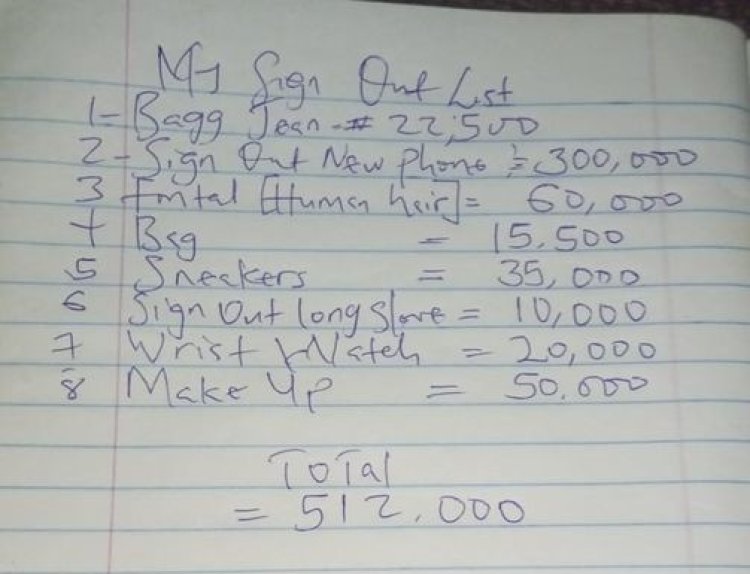 My Sign Out List
1- Bagg Jean - # 22,500
2 - Sign Out New phone = 300,000
3 Frntal [Human hair] = 60,000
4 Bag = 15.500
5 Sneakers = 35,000
6 Sign Out long Slove = 10,000
7 Wrist Watch = 20,000
8 Make Up = 50.000
ToTal
= 512.000